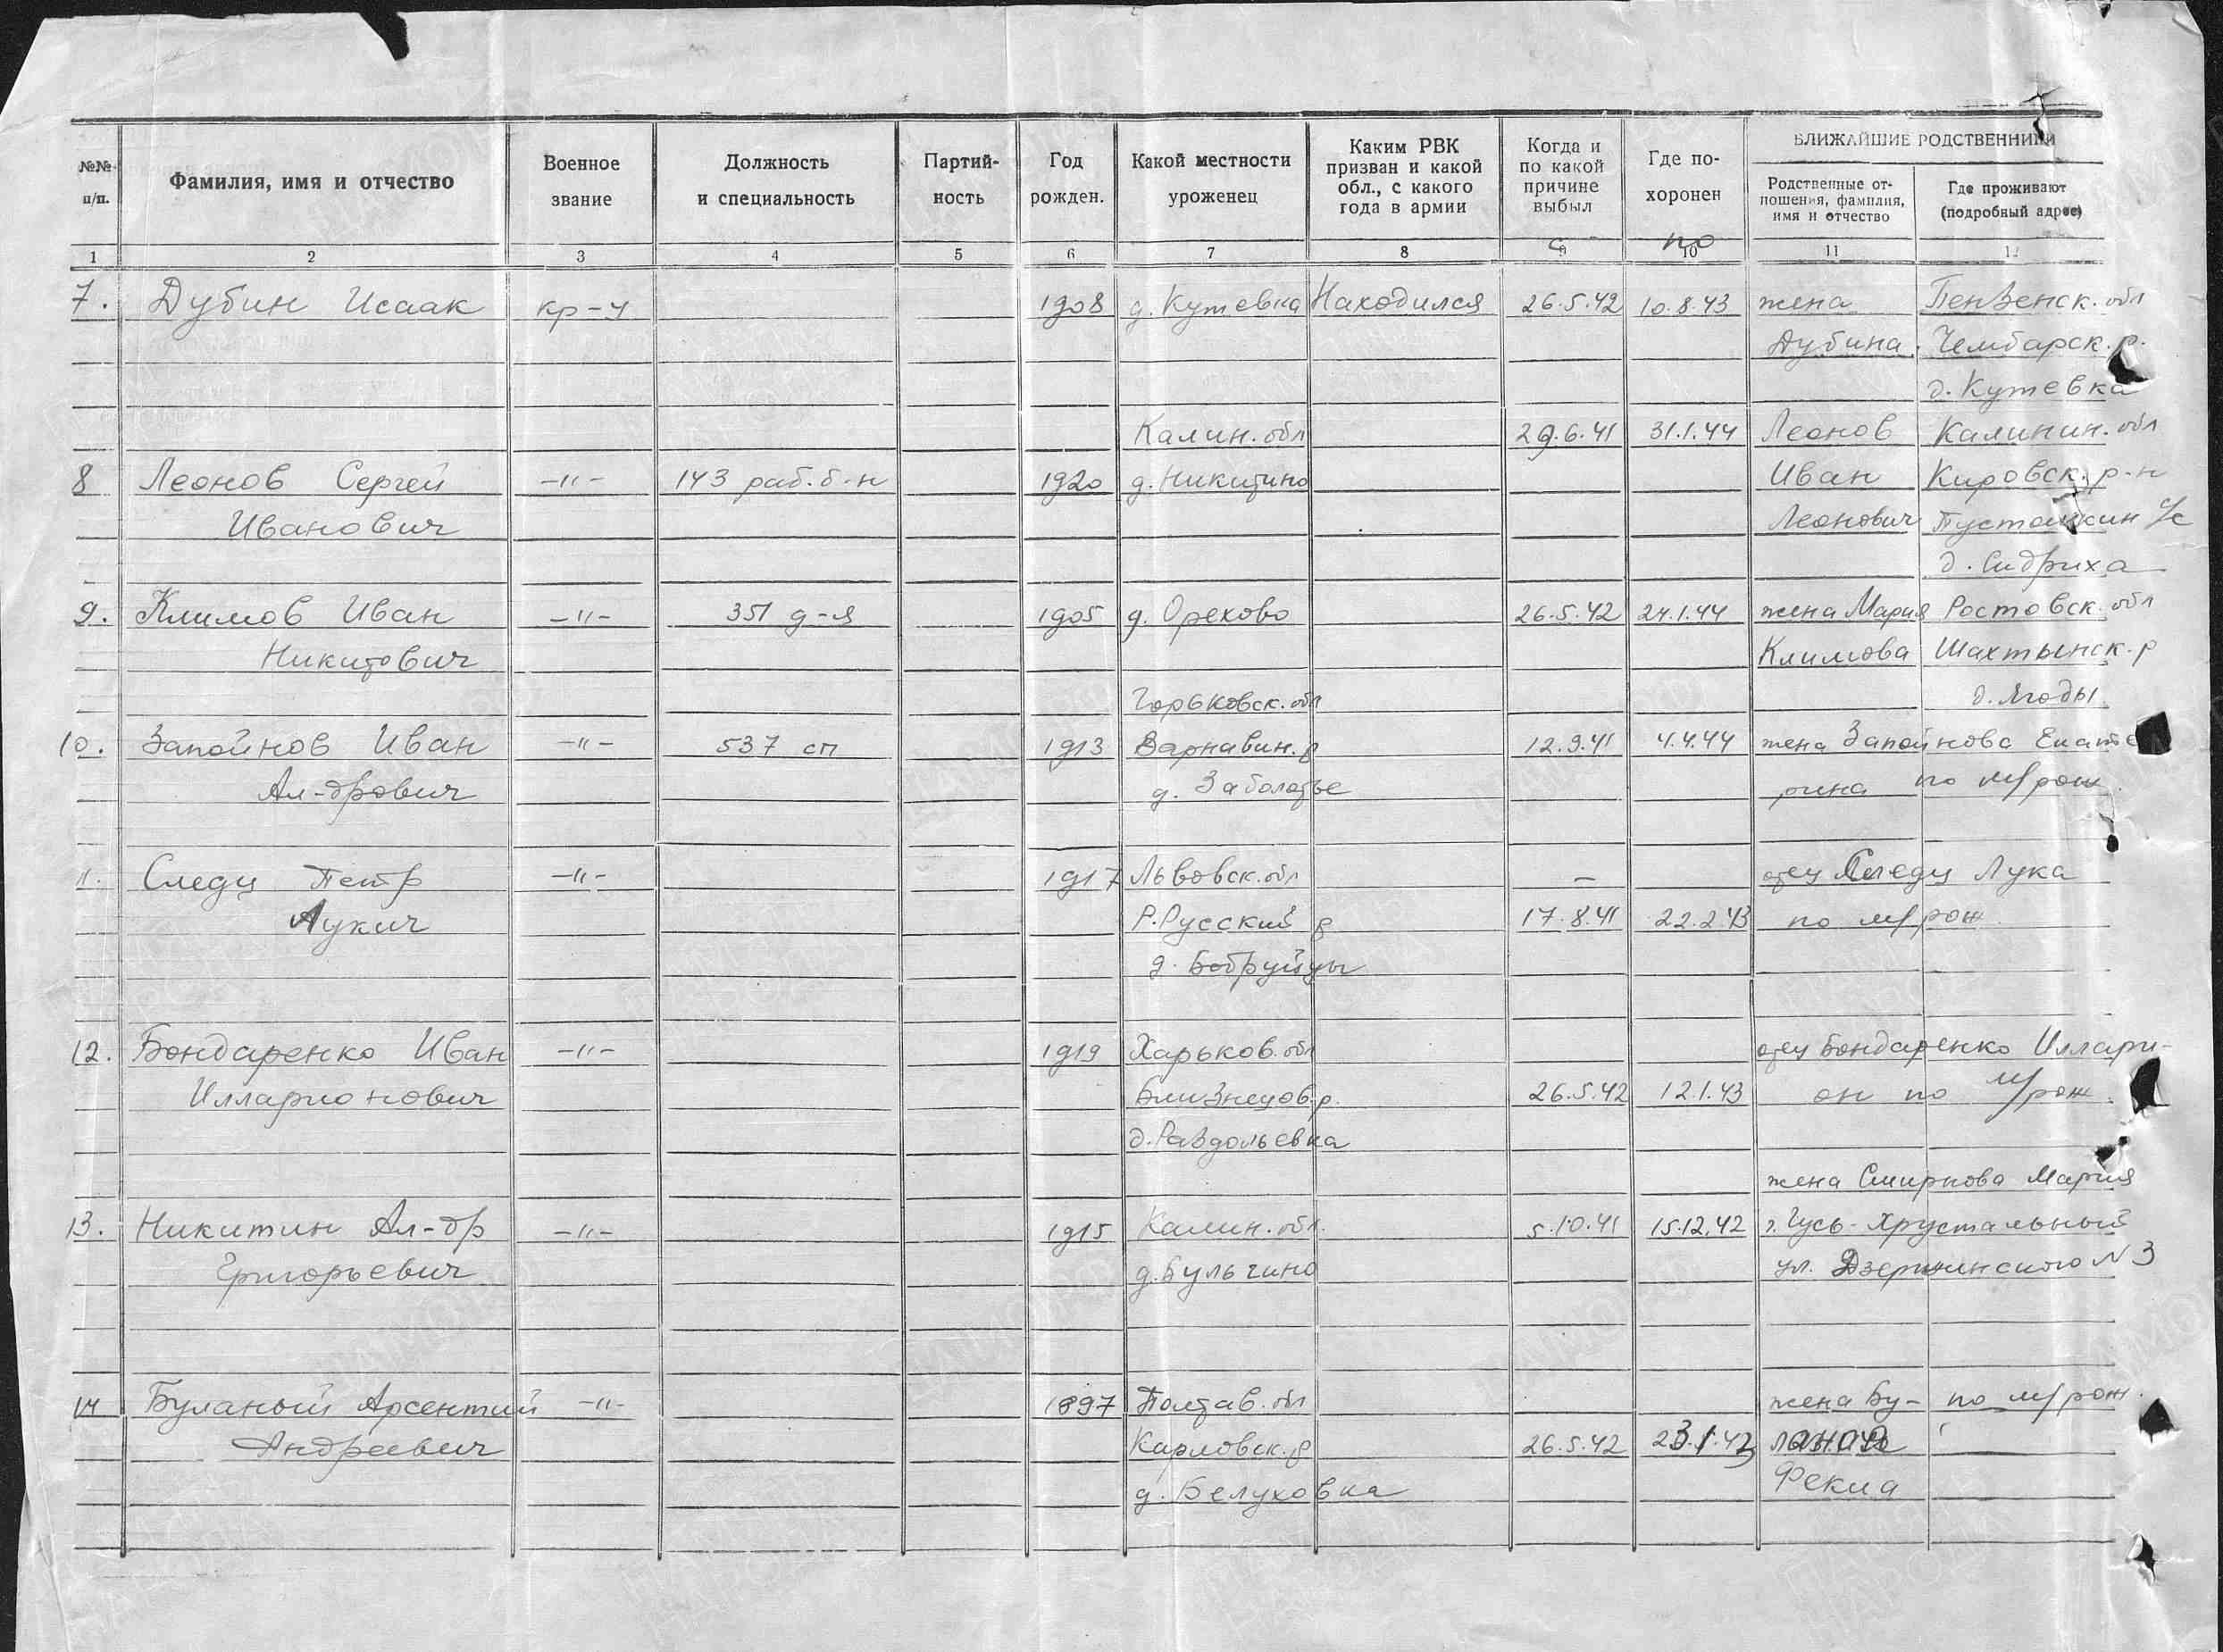 №№ п/п.
Фамилия, имя и отчество
Военное звание
Должность и специальность
Партий-ность
Год рожден.
Какой местности уроженец
Каким РВК призван и какой обл., с какого года в армии
Когда и по какой причине выбыл
Где по-хоронен
БЛИЖАЙШИЕ РОДСТВЕННИКИ
Родственные от-ношения, фамилия, имя и отчество
Где проживают (подробный адрес)
с - по
1 2 3 4 5 6 7 8 9 10 11 12
7. Дубин Исаак кр-ч 1908 д. Кутевка Находился 26.5.42 10.8.43 жена Пензенск. обл
Дубина. Чембарск. р.
д. Кутевка
Калин. обл 29.6.41 31.1.44 Леонов Калинин. обл
8 Леонов Сергей -"- 143 раб. б-н 1920 д. Никитино Иван Кировск. р-н
Иванович Леонович Пустошкин с/с
д. Сидриха
9. Климов Иван -"- 351 д-я 1905 д. Орехово 26.5.42 24.1.44 жена Мария Ростовск. обл
Никитович Климова Шахтынск. р
Горьковск. обл д. Ягоды
10. Запойнов Иван -"- 537 сп 1913 Варнавин. р 12.9.41 4.4.44 жена Запойнова Екате
Ал-дрович д. Заболотье рина по м/рож
11. Следц Петр -"- 1917 Львовск. обл - отец Следц Лука
Лукич Р. Русский р 17.8.41 22.2.43 по м/рож
д. Бобруйцы
12. Бондаренко Иван -"- 1919 Харьков. обл отец Бондаренко Иллари-
Илларионович Близнецов. р. 26.5.42 12.1.43 он по м/рож.
д. Раздольевка
жена Смирнова Мария
13. Никитин Ал-др -"- 1915 Калин. обл. 5.10.41 15.12.42 г. Гусь-Хрустальный
Григорьевич д. Бульгино ул. Дзержинского N 3
14 Буланый Арсентий -"- 1897 Полтав. обл жена Бу- по м/рож.
Андреевич Карловск. р 26.5.42 23.1.43 ланая
д. Белуховка Фекла